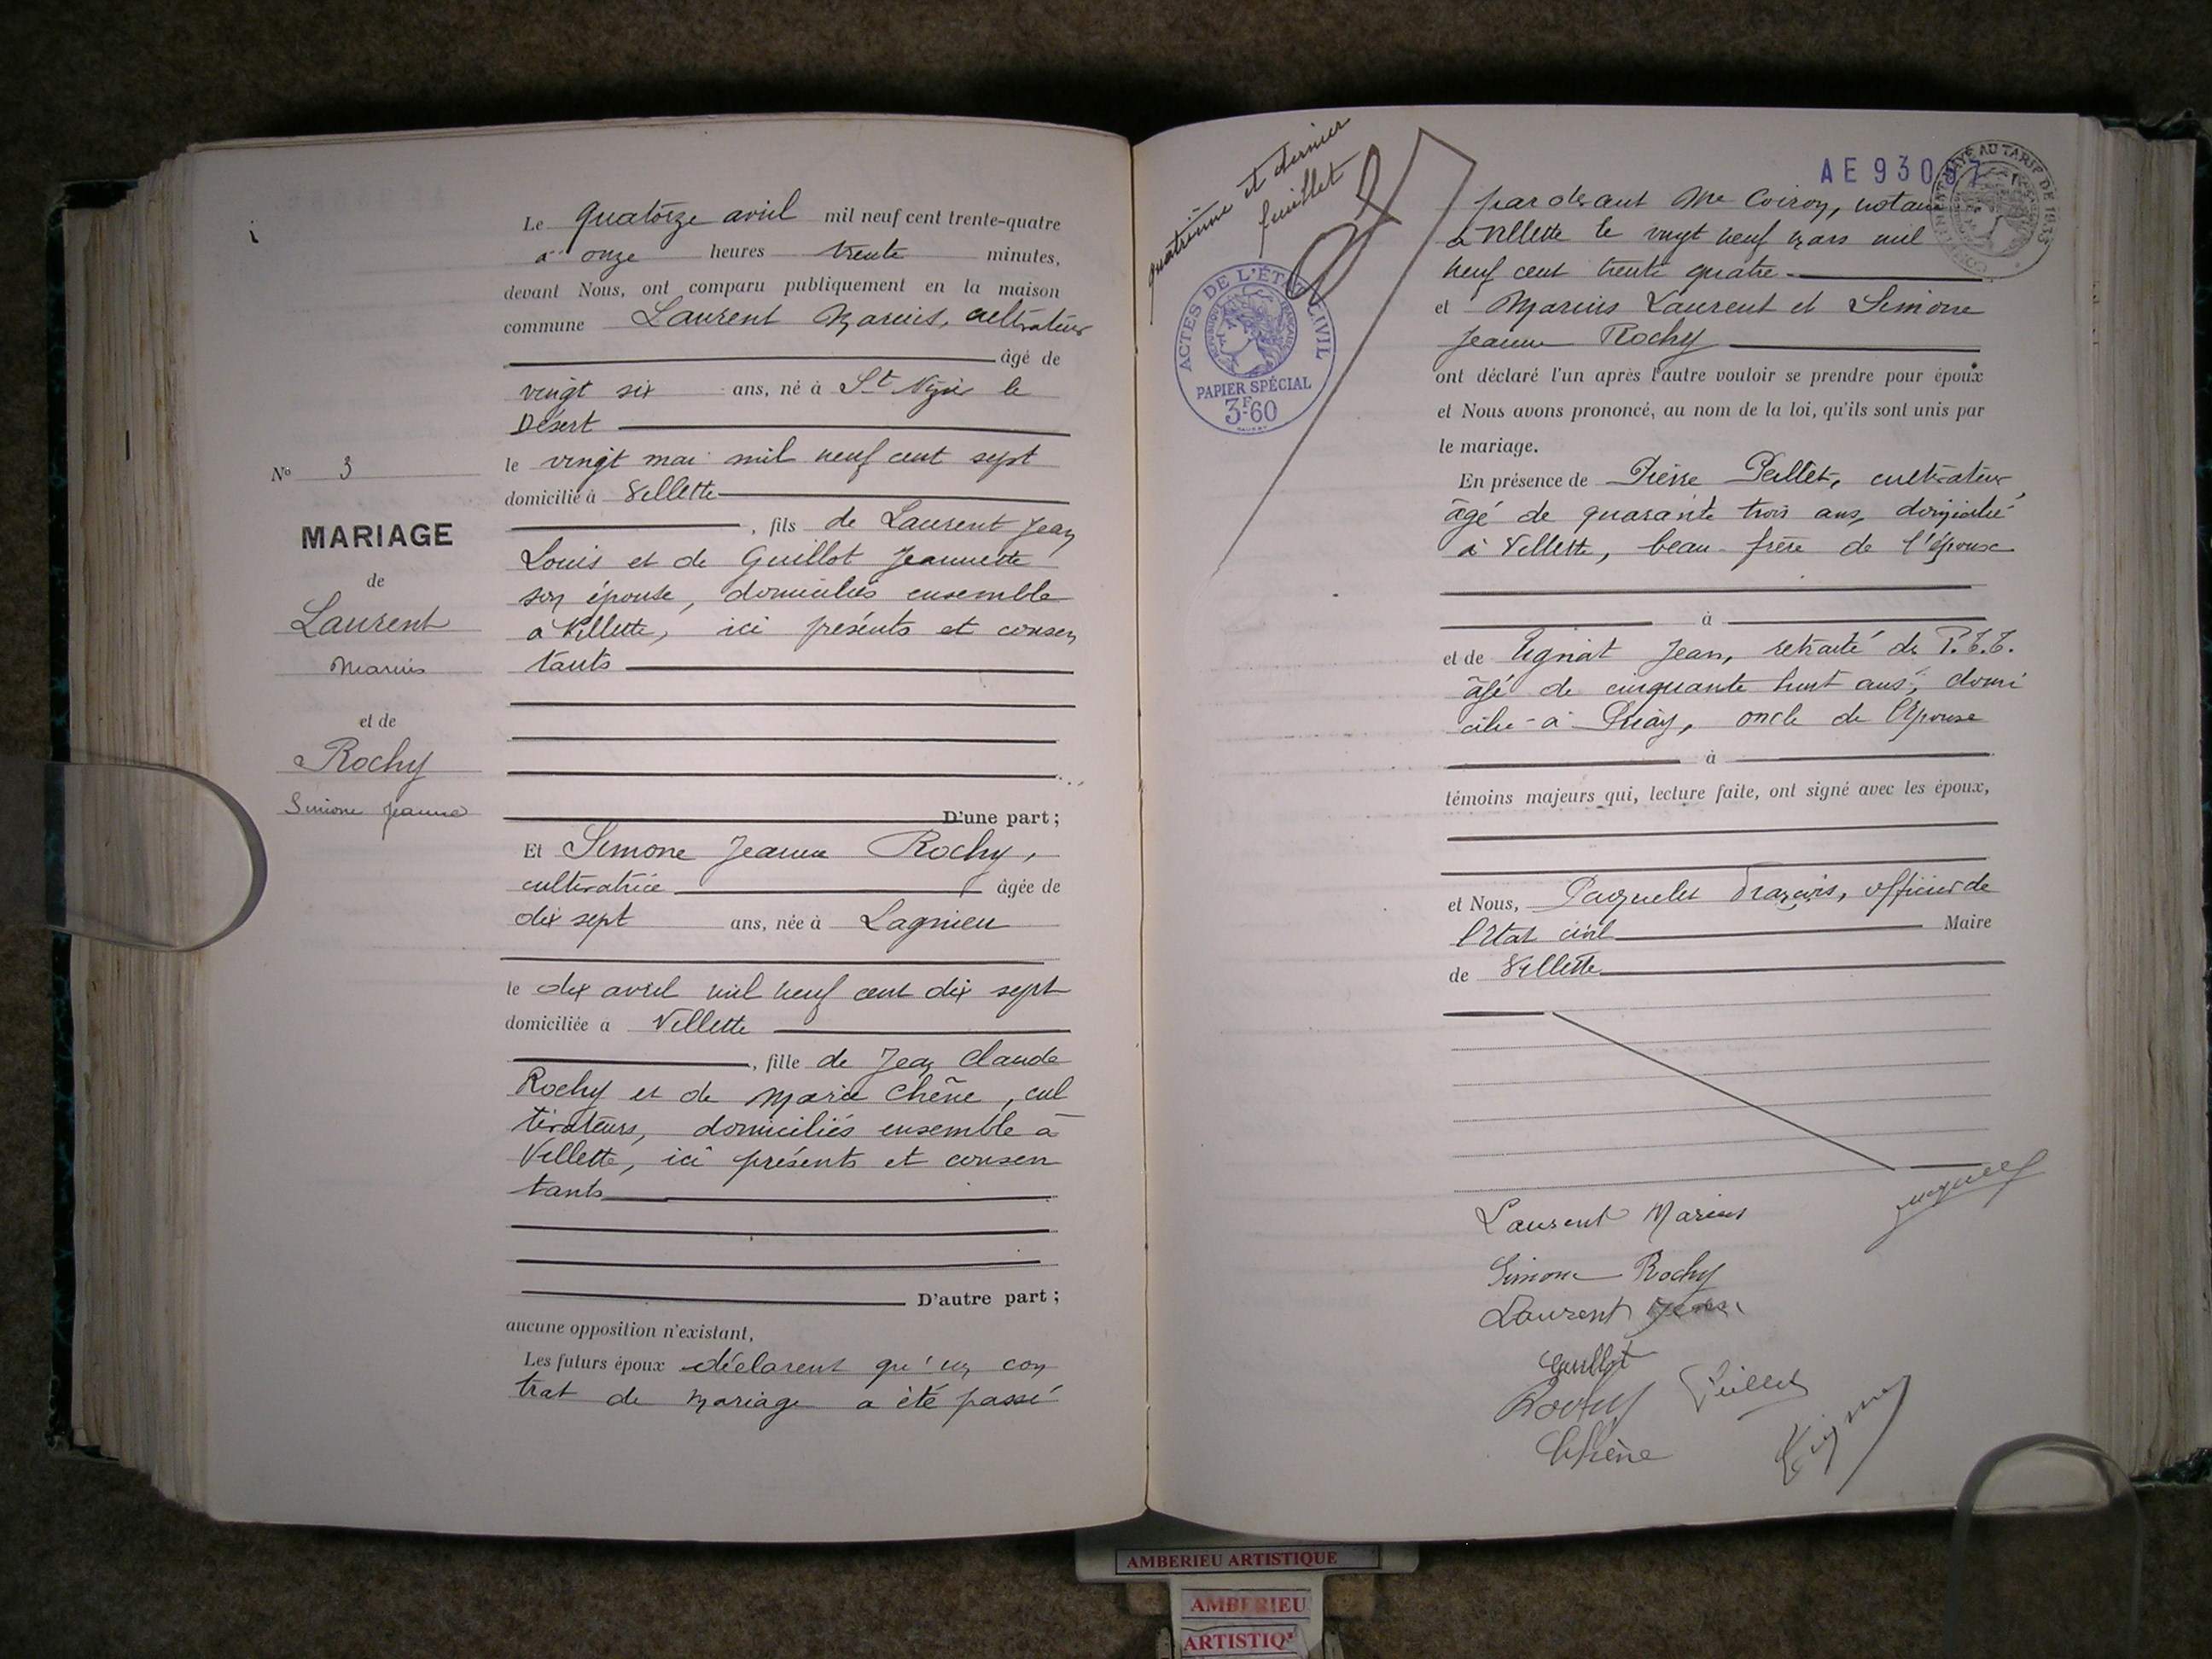 N° 3
MARIAGE
de
Laurent
Marius
et de
Rochy
Simone Jeanne
Le quatorze avril mil neuf cent trente-quatre
à onze heures trente minutes,
devant Nous, ont comparu publiquement en la maison
commune Laurent Marius, cultivateur
âgé de
vingt six ans, né à St Nizier le
Désert
le vingt mai mil neuf cent sept
domicilié à Villette
, fils de Laurent Jean
Louis et de Guillot Jeannette
son épouse, domiciliés ensemble
à Villette, ici présents et consen
tants
D'une part ;
Et Simone Jeanne Rochy,
cultivatrice âgée de
dix sept ans, née à Lagnieu
le dix avril mil neuf cent dix sept
domiciliée à Villette
, fille de Jean Claude
Rochy et de Marie Chêne, cul
tivateurs, domiciliés ensemble à
Villette, ici présents et consen
tants
D'autre part ;
aucune opposition n'existant,
Les futurs époux déclarent qu'un con
trat de mariage a été passé
quatrième et dernier
feuillet
ACTES DE L'ÉTAT CIVIL
RÉPUBLIQUE FRANÇAISE
PAPIER SPÉCIAL
3F60
AE 930 7
PAYÉ AU TARIF DE 1935
par devant Me Coiron, notaire
à Villette le vingt neuf mars mil
neuf cent trente quatre
et Marius Laurent et Simone
Jeanne Rochy
ont déclaré l'un après l'autre vouloir se prendre pour époux
et Nous avons prononcé, au nom de la loi, qu'ils sont unis par
le mariage.
En présence de Pierre Peillet, cultivateur,
âgé de quarante trois ans, domicilié
à Villette, beau-frère de l'épouse
à
et de Jean, retraité des P.T.T.
âgé de cinquante huit ans, domi
cilié à Priay, oncle de l'épouse
à
témoins majeurs qui, lecture faite, ont signé avec les époux,
et Nous, Paquelet François, officier de
l'état civil Maire
de Villette
Laurent Marius
Simone Rochy
Laurent Jean
Guillot
Rochy Peillet
Chêne
AMBERIEU ARTISTIQUE
AMBERIEU
ARTISTIQ